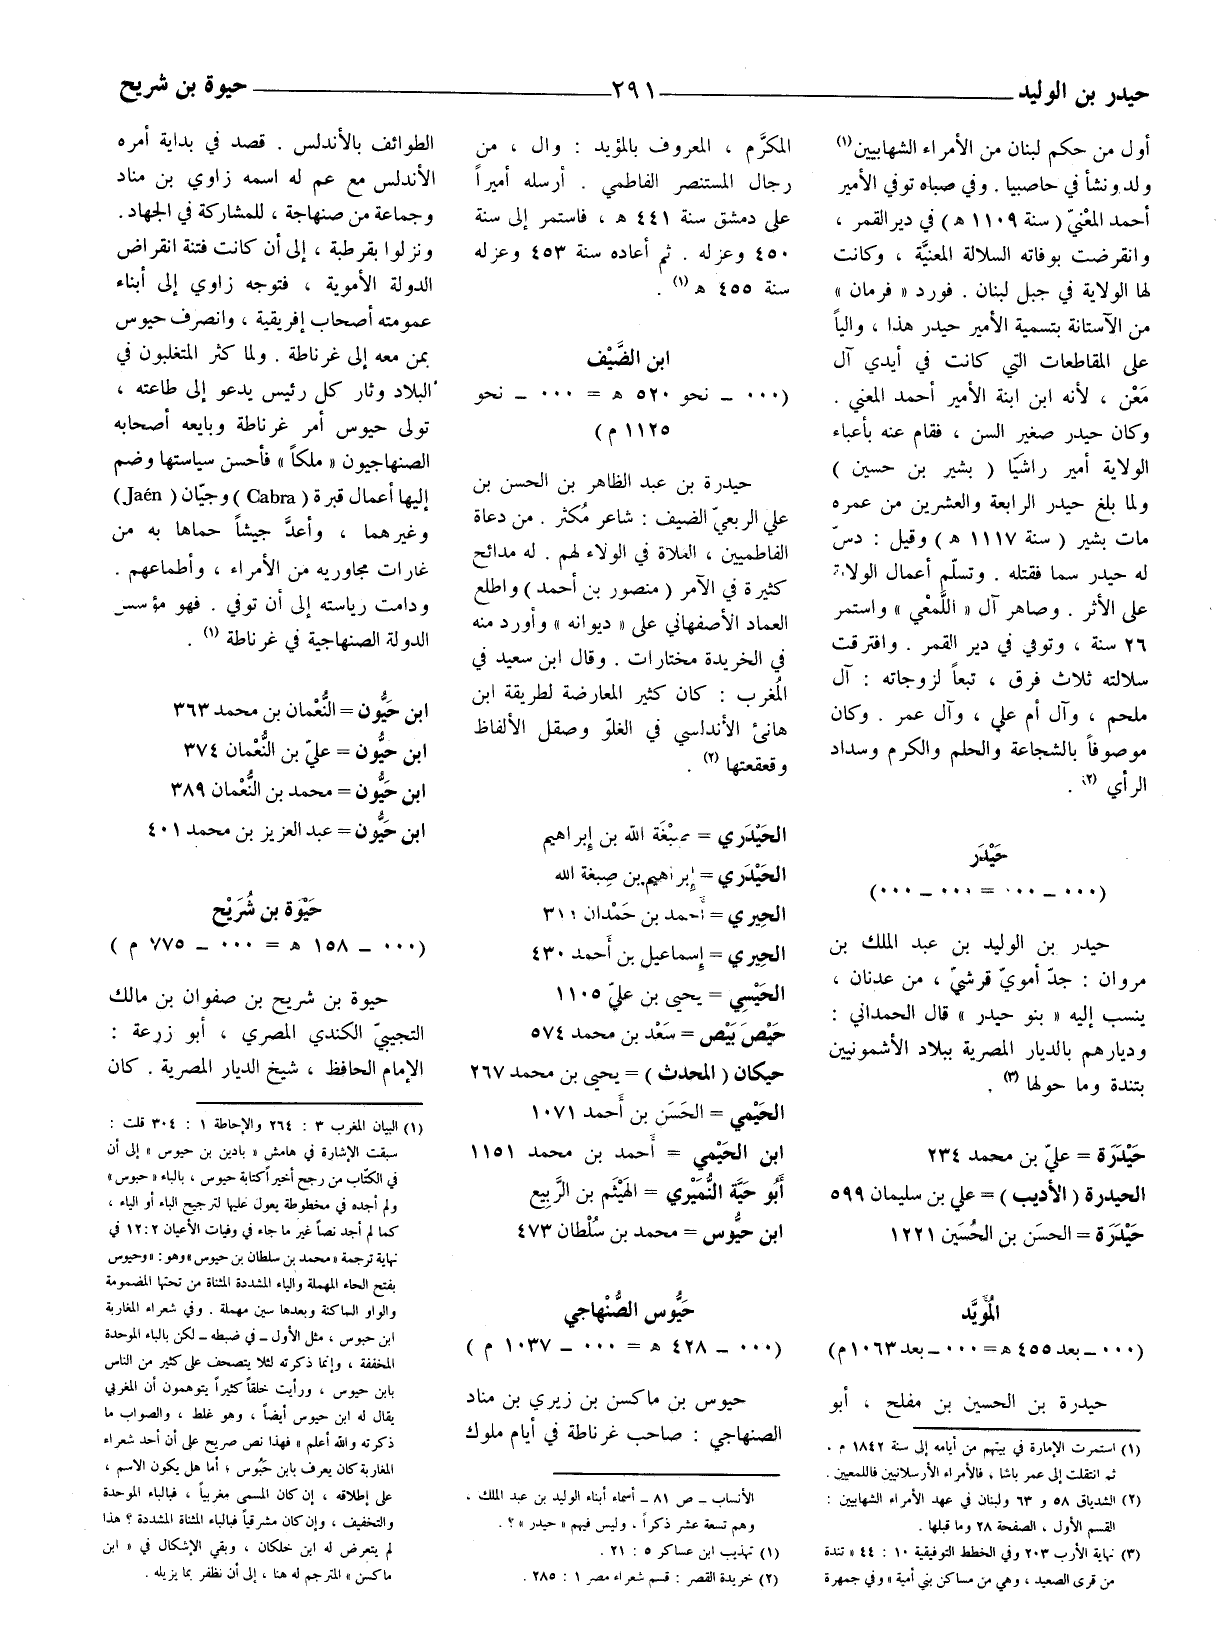 حيدر بن الوليد ٢٩١ حيوة بن شريح
أول من حكم لبنان من الأمراء الشهابيين (١)
ولد ونشأ في حاصبيا . وفي صباه توفي الأمير
أحمد المعْنيّ ( سنة ١١٠٩ ه ) في دير القمر ،
وانقرضت بوفاته السلالة المعنيَّة ، وكانت
لها الولاية في جبل لبنان . فورد « فرمان »
من الآستانة بتسمية الأمير حيدر هذا ، والياً
على المقاطعات التي كانت في أيدي آل
مَعْن ، لأنه ابن ابنة الأمير أحمد المعني .
وكان حيدر صغير السن ، فقام عنه بأعباء
الولاية أمير راشيَّا ( بشير بن حسين )
ولما بلغ حيدر الرابعة والعشرين من عمره
مات بشير ( سنة ١١١٧ ه ) وقيل : دسّ
له حيدر سما فقتله . وتسلّم أعمال الولاية
على الأثر . وصاهر آل « اللَّمْعي » واستمر
٢٦ سنة ، وتوفي في دير القمر . وافترقت
سلالته ثلاث فرق ، تبعاً لزوجاته : آل
ملحم ، وآل أم علي ، وآل عمر . وكان
موصوفاً بالشجاعة والحلم والكرم وسداد
الرأي (٢) .
حَيْدَر
(٠٠٠ ــ ٠٠٠ = ٠٠٠ ــ ٠٠٠)
حيدر بن الوليد بن عبد الملك بن
مروان : جدّ أمويّ قرشيّ ، من عدنان ،
ينسب إليه « بنو حيدر » قال الحمداني :
وديارهم بالديار المصرية ببلاد الأشمونيين
بتندة وما حولها (٣) .
حَيْدَرَة = عليّ بن محمد ٢٣٤
الحيدرة ( الأديب ) = علي بن سليمان ٥٩٩
حَيْدَرَة = الحسَن بن الحُسَين ١٢٢١
المُؤيَّد
(٠٠٠ ــ بعد ٤٥٥ ه = ٠٠٠ ــ بعد ١٠٦٣ م)
حيدرة بن الحسين بن مفلح ، أبو
(١) استمرت الإمارة في بيتهم من أيامه إلى سنة ١٨٤٢ م .
ثم انتقلت إلى عمر باشا ، فالأمراء الأرسلانيين فاللمعين .
(٢) الشدياق ٥٨ و ٦٣ ولبنان في عهد الأمراء الشهابيين :
القسم الأول ، الصفحة ٢٨ وما قبلها .
(٣) نهاية الأرب ٢٠٣ وفي الخطط التوفيقية ١٠ : ٤٤ « تندة
من قرى الصعيد ، وهي من مساكن بني أمية » وفي جمهرة
المكرَّم ، المعروف بالمؤيد : وال ، من
رجال المستنصر الفاطمي . أرسله أميراً
على دمشق سنة ٤٤١ ه ، فاستمر إلى سنة
٤٥٠ وعزله . ثم أعاده سنة ٤٥٣ وعزله
سنة ٤٥٥ ه (١) .
ابن الضَّيْف
(٠٠٠ ــ نحو ٥٢٠ ه = ٠٠٠ ــ نحو
١١٢٥ م)
حيدرة بن عبد الظاهر بن الحسن بن
علي الربعيّ الضيف : شاعر مُكثر . من دعاة
الفاطميين ، الغلاة في الولاء لهم . له مدائح
كثيرة في الآمر ( منصور بن أحمد ) واطلع
العماد الأصفهاني على « ديوانه » وأورد منه
في الخريدة مختارات . وقال ابن سعيد في
المُغرب : كان كثير المعارضة لطريقة ابن
هانئ الأندلسي في الغلوّ وصقل الألفاظ
وقعقعتها (٢) .
الحَيْدَري = صِبْغَة الله بن إبراهيم
الحَيْدَري = إبراهيم بن صبغة الله
الحِيري = أحمد بن حَمْدان ٣١١
الحِيري = إسماعيل بن أحمد ٤٣٠
الحَيْسِي = يحيى بن عليّ ١١٠٥
حَيْصَ بَيْص = سَعْد بن محمد ٥٧٤
حيكان ( المحدث ) = يحيى بن محمد ٢٦٧
الحَيْمي = الحَسَن بن أحمد ١٠٧١
ابن الحَيْمي = أحمد بن محمد ١١٥١
أَبُو حَيَّة النُّمَيْري = الهَيْثَم بن الرَّبيع
ابن حيُّوس = محمد بن سُلْطان ٤٧٣
حَيُّوس الصُّنْهاجي
(٠٠٠ ــ ٤٢٨ ه = ٠٠٠ ــ ١٠٣٧ م )
حيوس بن ماكسن بن زيري بن مناد
الصنهاجي : صاحب غرناطة في أيام ملوك
الأنساب ــ ص ٨١ ــ أسماء أبناء الوليد بن عبد الملك ،
وهم تسعة عشر ذكراً ، وليس فيهم « حيدر » ؟ .
(١) تهذيب ابن عساكر ٥ : ٢١ .
(٢) خريدة القصر : قسم شعراء مصر ١ : ٢٨٥ .
الطوائف بالأندلس . قصد في بداية أمره
الأندلس مع عم له اسمه زاوي بن مناد
وجماعة من صنهاجة ، للمشاركة في الجهاد.
ونزلوا بقرطبة ، إلى أن كانت فتنة انقراض
الدولة الأموية ، فتوجه زاوي إلى أبناء
عمومته أصحاب إفريقية ، وانصرف حيوس
بمن معه إلى غرناطة . ولما كثر المتغلبون في
البلاد وثار كل رئيس يدعو إلى طاعته ،
تولى حيوس أمر غرناطة وبايعه أصحابه
الصنهاجيون « ملكاً » فأحسن سياستها وضم
إليها أعمال قبرة ( Cabra ) وجيّان ( Jaén )
وغيرهما ، وأعدَّ جيشاً حماها به من
غارات مجاوريه من الأمراء ، وأطماعهم .
ودامت رياسته إلى أن توفي . فهو مؤسس
الدولة الصنهاجية في غرناطة (١) .
ابن حَيُّون = النُّعْمان بن محمد ٣٦٣
ابن حَيُّون = عليّ بن النُّعْمان ٣٧٤
ابن حَيُّون = محمد بن النُّعْمان ٣٨٩
ابن حَيُّون = عبد العزيز بن محمد ٤٠١
حَيْوَة بن شُرَيْح
(٠٠٠ ــ ١٥٨ ه = ٠٠٠ ــ ٧٧٥ م )
حيوة بن شريح بن صفوان بن مالك
التجيبيّ الكندي المصري ، أبو زرعة :
الإمام الحافظ ، شيخ الديار المصرية . كان
(١) البيان المغرب ٣ : ٢٦٤ والإحاطة ١ : ٣٠٤ قلت :
سبقت الإشارة في هامش « بادين بن حيوس » إلى أن
في الكتّاب من رجح أخيراً كتابة حيوس ، بالباء « حبوس »
ولم أجده في مخطوطة يعول عليها لترجيح الباء أو الياء ،
كما لم أجد نصاً غير ما جاء في وفيات الأعيان ٢ : ١٢ في
نهاية ترجمة « محمد بن سلطان بن حيوس » وهو : « وحيوس
بفتح الحاء المهملة والياء المشددة المثناة من تحتها المضمومة
والواو الساكنة وبعدها سين مهملة . وفي شعراء المغاربة
ابن حبوس ، مثل الأول ــ في ضبطه ــ لكن بالباء الموحدة
المخففة ، وإنما ذكرته لئلا يتصحف على كثير من الناس
بابن حيوس ، ورأيت خلقاً كثيراً يتوهمون أن المغربي
يقال له ابن حيوس أيضاً ، وهو غلط ، والصواب ما
ذكرته والله أعلم » فهذا نص صريح على أن أحد شعراء
المغاربة كان يعرف بابن حَبُوس ؛ أما هل يكون الاسم ،
على إطلاقه ، إن كان المسمى مغربياً ، فبالباء الموحدة
والتخفيف ، وإن كان مشرقياً فبالياء المثناة المشددة ؟ هذا
لم يتعرض له ابن خلكان ، وبقي الإشكال في « ابن
ماكسن » المترجم له هنا ، إلى أن نظفر بما يزيله .